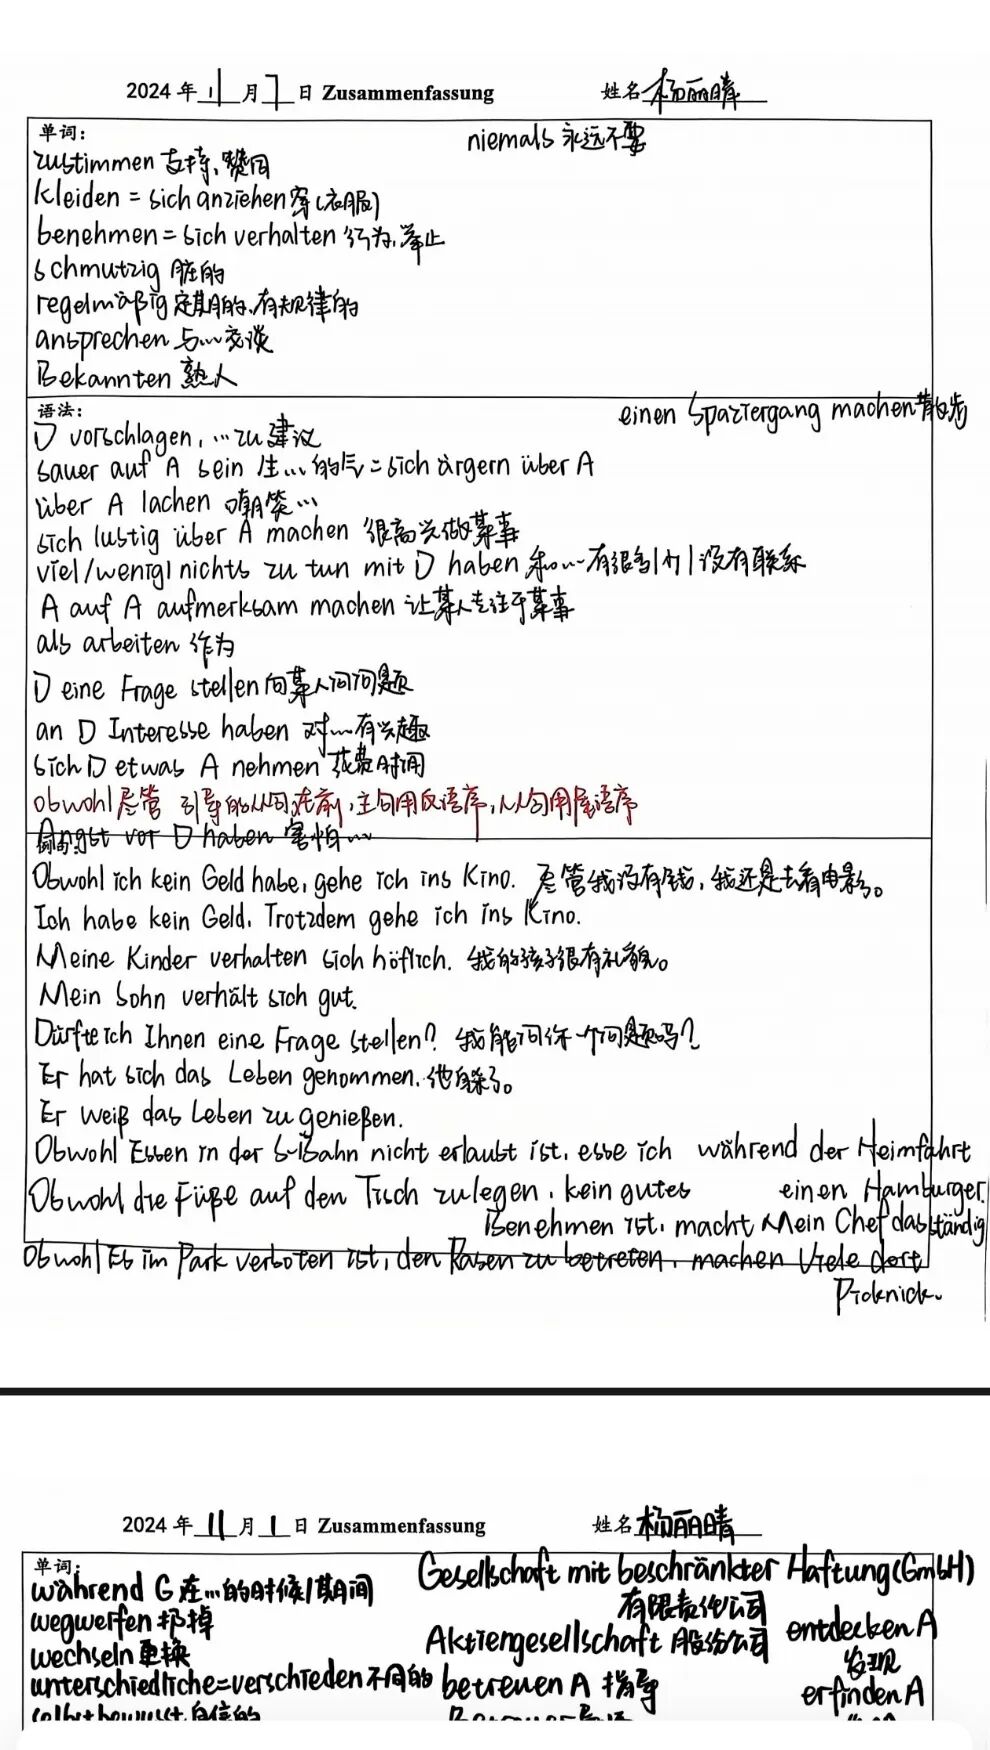 2024 年 11 月 7 日 Zusammenfassung 姓名 杨丽晴
单词: niemals 永远不要
zustimmen 支持、赞同
kleiden = sich anziehen 穿(衣服)
benehmen = sich verhalten 行为、举止
schmutzig 脏的
regelmäßig 定期的、有规律的
ansprechen 与…交谈
Bekannten 熟人
语法: einen Spaziergang machen 散步
D vorschlagen, …zu 建议
sauer auf A sein 生…的气 = sich ärgern über A
über A lachen 嘲笑…
sich lustig über A machen 很高兴做某事
viel/wenig/nichts zu tun mit D haben 和…有很多|少|没有联系
A auf A aufmerksam machen 让某人专注于某事
als arbeiten 作为
D eine Frage stellen 向某人问问题
an D Interesse haben 对…有兴趣
sich D etwas A nehmen 花费时间
obwohl 尽管 引导的从句在前,主句用反语序,从句用尾语序
Angst vor D haben 害怕…
Obwohl ich kein Geld habe, gehe ich ins Kino. 尽管我没有钱,我还是去看电影。
Ich habe kein Geld. Trotzdem gehe ich ins Kino.
Meine Kinder verhalten sich höflich. 我的孩子很有礼貌。
Mein Sohn verhält sich gut.
Dürfte ich Ihnen eine Frage stellen? 我能问你一个问题吗?
Er hat sich das Leben genommen. 他自杀了。
Er weiß das Leben zu genießen.
Obwohl Essen in der S-Bahn nicht erlaubt ist, esse ich während der Heimfahrt
einen Hamburger
Obwohl die Füße auf den Tisch zu legen, kein gutes
Benehmen ist, macht Mein Chef das ständig
Obwohl Es im Park verboten ist, den Rasen zu betreten, machen Viele dort
Picknick.
2024 年 11 月 1 日 Zusammenfassung 姓名 杨丽晴
单词: Gesellschaft mit beschränkter Haftung (GmbH)
während G 在…的时候/期间 有限责任公司
wegwerfen 扔掉 Aktiengesellschaft 股份公司 entdecken A
wechseln 更换 发现
unterschiedliche = verschieden 不同的 betreuen A 指导 erfinden A
selbstbewusst 自信的